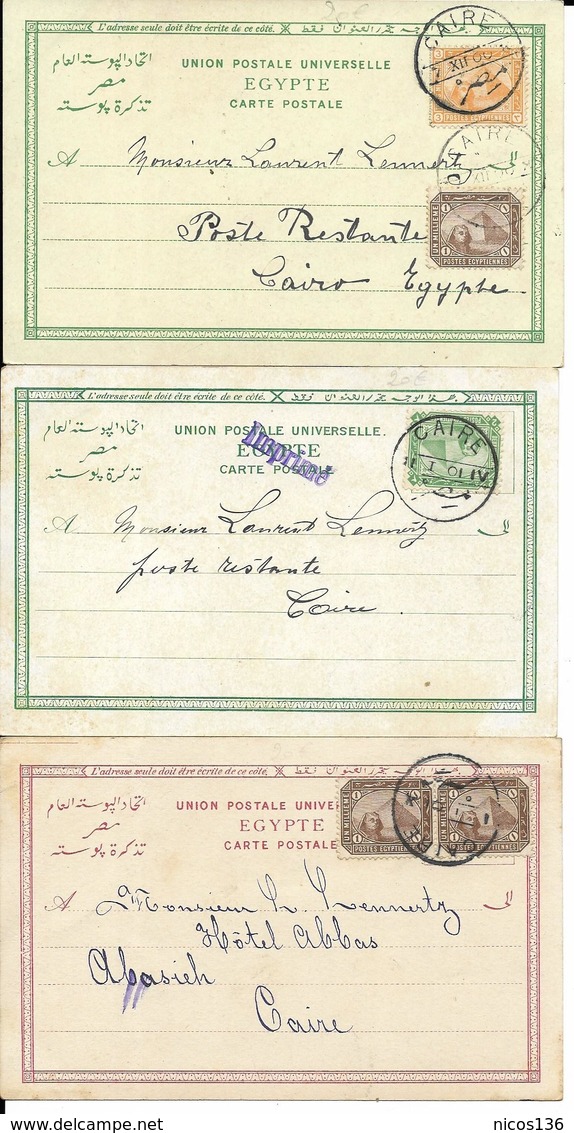 L'adresse seule doit être écrite de ce côté.
اتحاد البوسته العام
مصر
تذكرة بوسته
UNION POSTALE UNIVERSELLE
EGYPTE
CARTE POSTALE
CAIRE
XII 00
3 POSTES EGYPTIENNES ٣
CAIRE
A Monsieur Laurent Lennertz الى
Poste Restante
Cairo Egypte
UN MILLIEME
1 POSTES EGYPTIENNES ١
L'adresse seule doit être écrite de ce côté.
اتحاد البوسته العام
مصر
تذكرة بوسته
UNION POSTALE UNIVERSELLE.
EGYPTE
CARTE POSTALE
Imprimé
CAIRE
I 01
A Monsieur Laurent Lennertz الى
poste restante
Caire.
L'adresse seule doit être écrite de ce côté.
اتحاد البوسته العام
مصر
تذكرة بوسته
UNION POSTALE UNIVER
EGYPTE
CARTE POSTALE
UN MILLIEME
1 POSTES EGYPTIENNES ١
UN MILLIEME
1 POSTES EGYPTIENNES ١
A Monsieur L. Lennertz الى
Hôtel Abbas
Abasieh
Caire
www.delcampe.net
nicos136